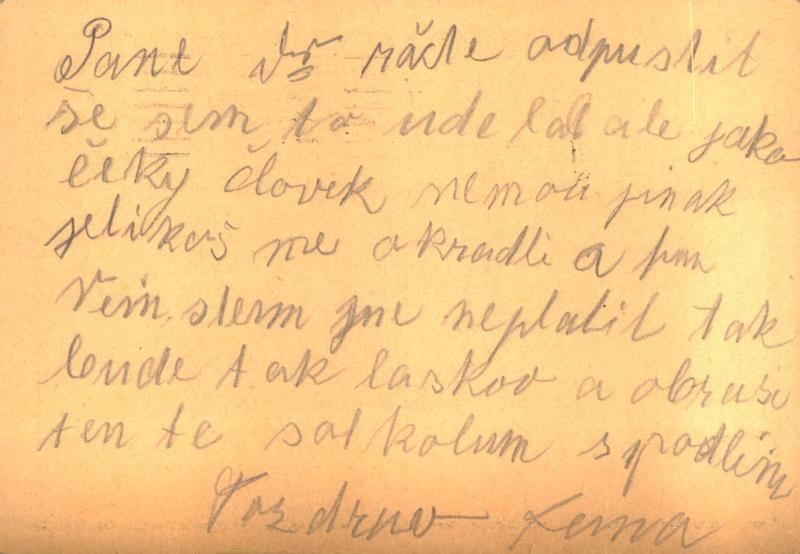 Pane dr ráčte odpustit
že sem to udelal ale jako
čiký človek nemou jinak
jelikoš me okradli a pan
Vein, slein jme neplatil tak
bude tak laskov a obrasi
ten te sol kolum s podlim
Pozdrav